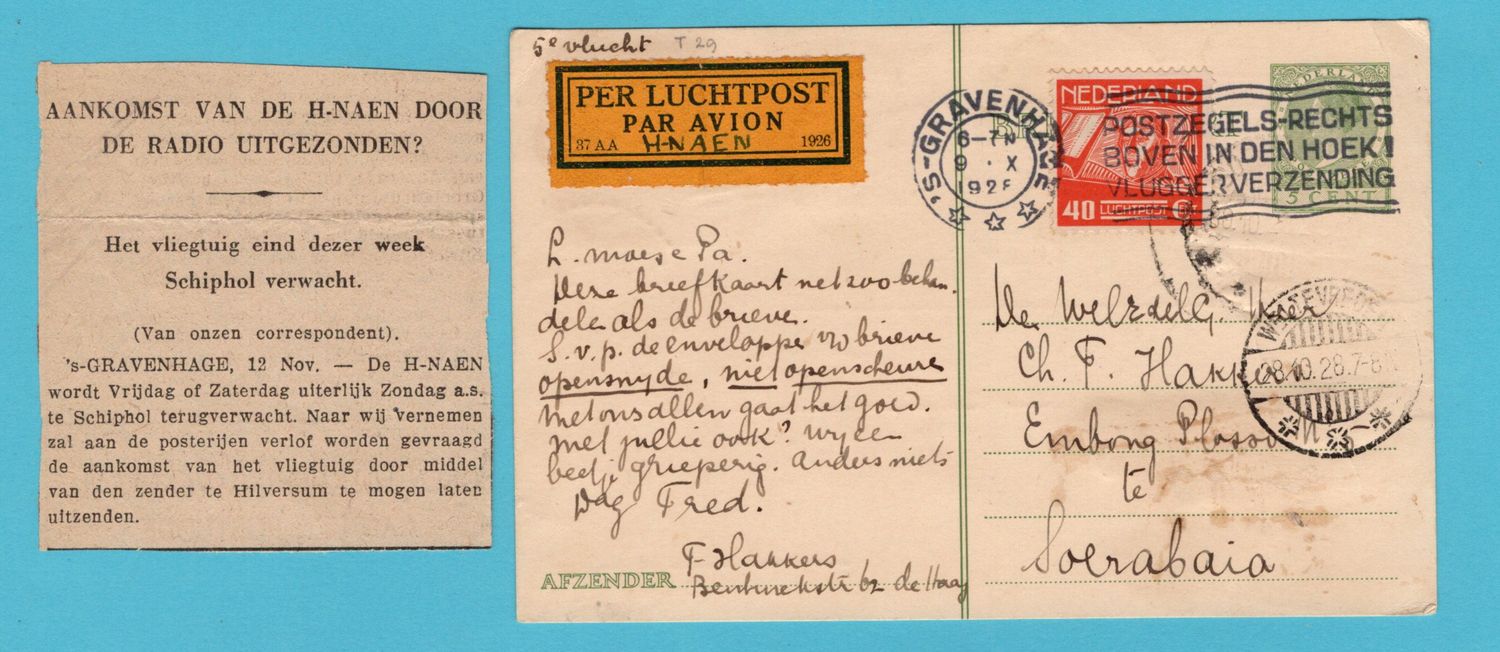 AANKOMST VAN DE H-NAEN DOOR
DE RADIO UITGEZONDEN?
Het vliegtuig eind dezer week
Schiphol verwacht.
(Van onzen correspondent).
's-GRAVENHAGE, 12 Nov. — De H-NAEN
wordt Vrijdag of Zaterdag uiterlijk Zondag a.s.
te Schiphol terugverwacht. Naar wij vernemen
zal aan de posterijen verlof worden gevraagd
de aankomst van het vliegtuig door middel
van den zender te Hilversum te mogen laten
uitzenden.
5e vlucht T 29
PER LUCHTPOST
PAR AVION
37 A A H-NAEN 1926
L. moes e Pa.
Deze briefkaart net zoo behan-
delen als de brieve.
S.v.p. de enveloppe v/d brieve
opensnyde, niet openscheure
Met ons allen gaat het goed.
Met jullie ook? Wy een
beetje grieperig. Anders niets
Dag Fred.
F Hakkers
AFZENDER Bentinckstr 62 de Haag
'S-GRAVENHAGE
6-7 N
9 X
1928
NEDERLAND
40 LUCHTPOST
POSTZEGELS-RECHTS
BOVEN IN DEN HOEK!
VLUGGER VERZENDING
5 CENT
WELTEVREDEN
28.10.28.7-8
De Weledelg. Heer
Ch. F. Hakkers
Embong Plosso
te
Soerabaia